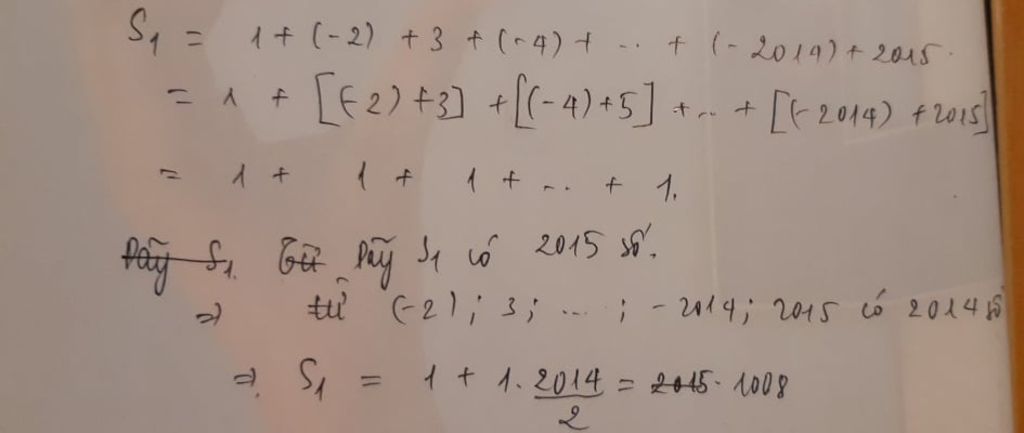 S₁ = 1 + (-2) + 3 + (-4) + ... + (-2014) + 2015.
= 1 + [(-2) + 3] + [(-4) + 5] + ... + [(-2014) + 2015]
= 1 + 1 + 1 + ... + 1.
Dãy S₁. Từ Dãy S₁ có 2015 số.
⇒ từ (-2); 3; ...; -2014; 2015 có 2014 số
⇒ S₁ = 1 + 1. 2014/2 = 2015. 1008